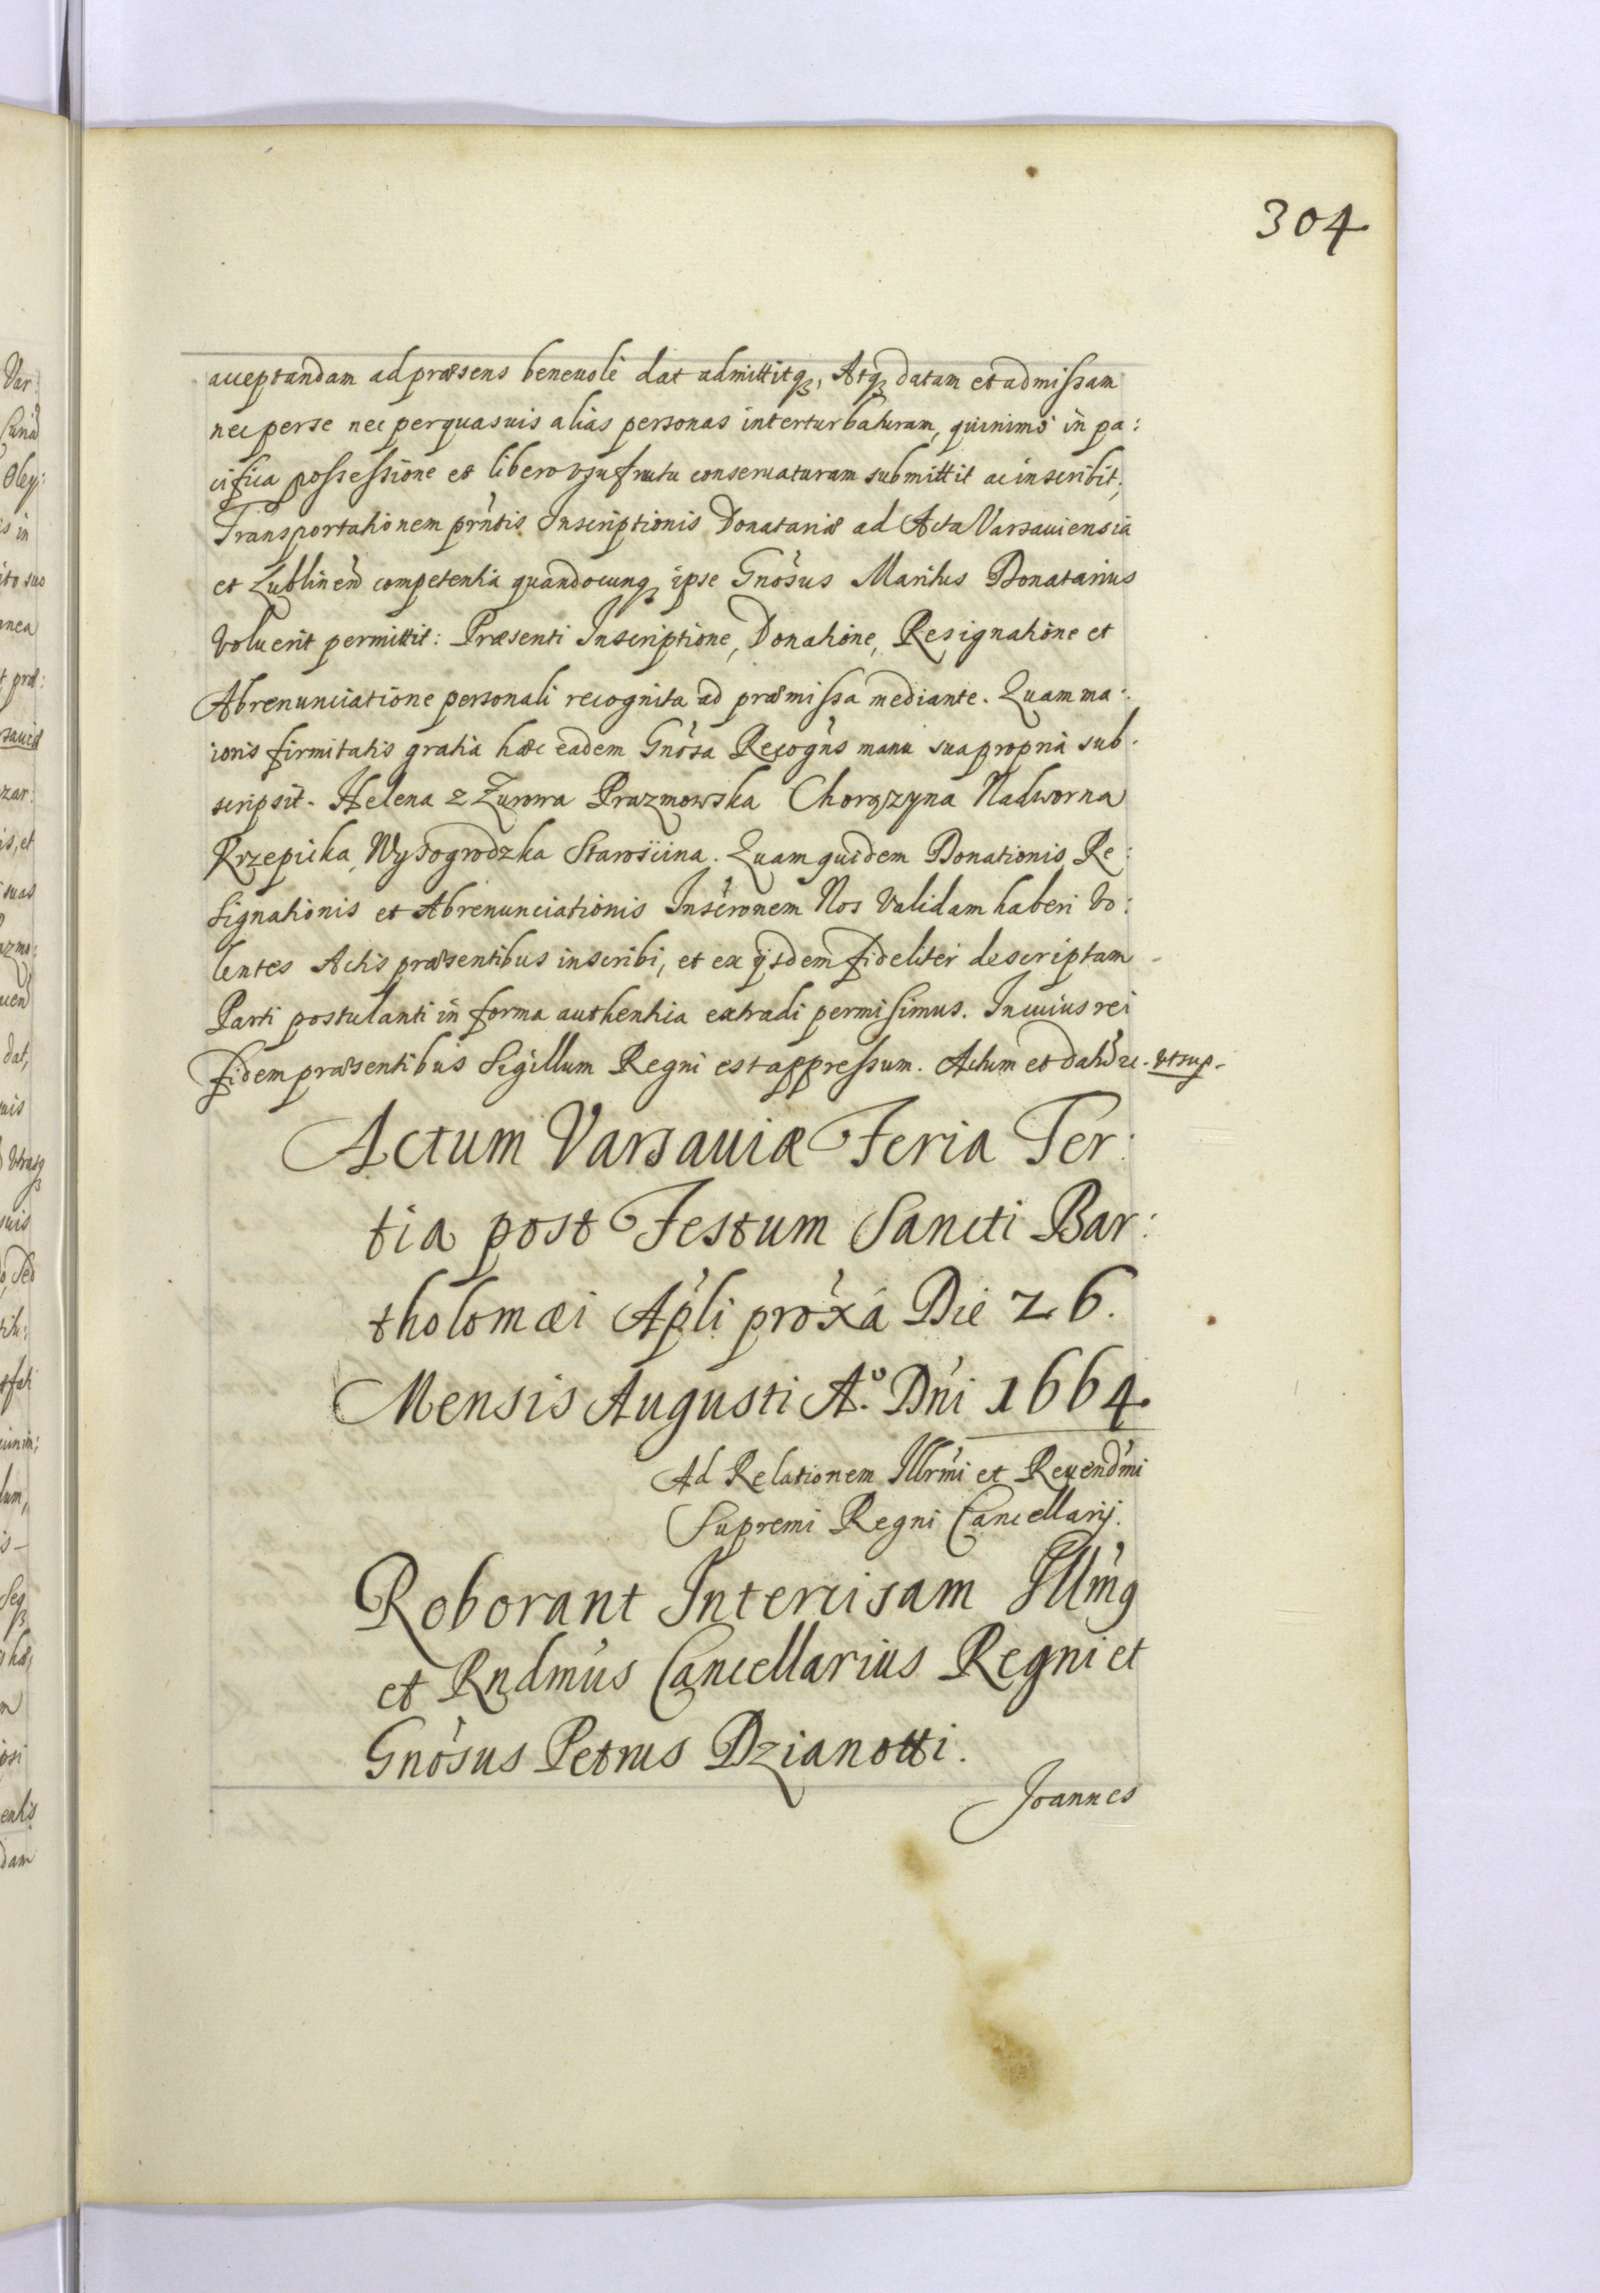 304
acceptandam ad præsens beneuole dat admittitqꝫ, Atqꝫ datam et admissam
nec per se nec per quasuis alias personas interturbaturam, quinimo in pa:
cifica possessione et libero vsufructu conseruaturam submittit ac inscribit,
Transportationem prntis Inscriptionis Donatariæ ad Acta Varsauiensia
et Lublinen competentia quandocunqꝫ ipse Gnosus Maritus Donatarius
voluerit permittit: Præsenti Inscriptione, Donatione, Resignatione et
Abrenunciatione personali recognita ad præmissa mediante. Quam ma:
ioris firmitatis gratia hæc eadem Gnosa Recogns manu sua propria sub:
scripsit. Helena z Zurowa Prazmowska Chorązyna Nadworna
Krzepicka, Wyszogrodzka Starościna. Quam quidem Donationis, Re:
signationis et Abrenunciationis Inscronem Nos validam haberi vo:
lentes Actis præsentibus inscribi, et ex ijsdem fideliter descriptam
Parti postulanti in forma authentica extradi permisimus. In cuius rei
fidem præsentibus Sigillum Regni est appressum. Actum et Datu vt sup.
Actum Varsauiæ Feria Ter:
tia post Festum Sancti Bar:
tholomæi Apli proxa Die 26.
Mensis Augusti A.° Dni 1664.
Ad Relationem Illrmi et Reuendmi
Supremi Regni Cancellarij.
Roborant Intercisam Illmg
et Rndmus Cancellarius Regni et
Gnosus Petrus Dzianotti.
Joannes